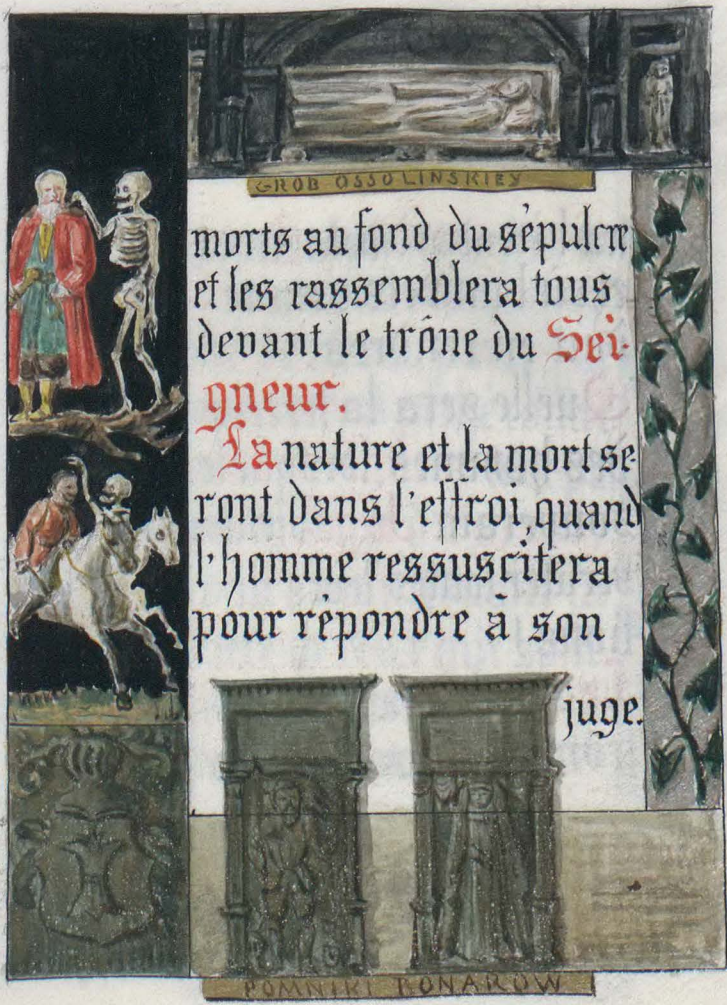 GROB OSSOLINSKIEY
morts au fond du sépulcre
et les rassemblera tous
devant le trône du Sei-
gneur.
La nature et la mort se-
ront dans l'effroi, quand
l'homme ressuscitera
pour répondre à son
juge.
POMNIKI BONAROW